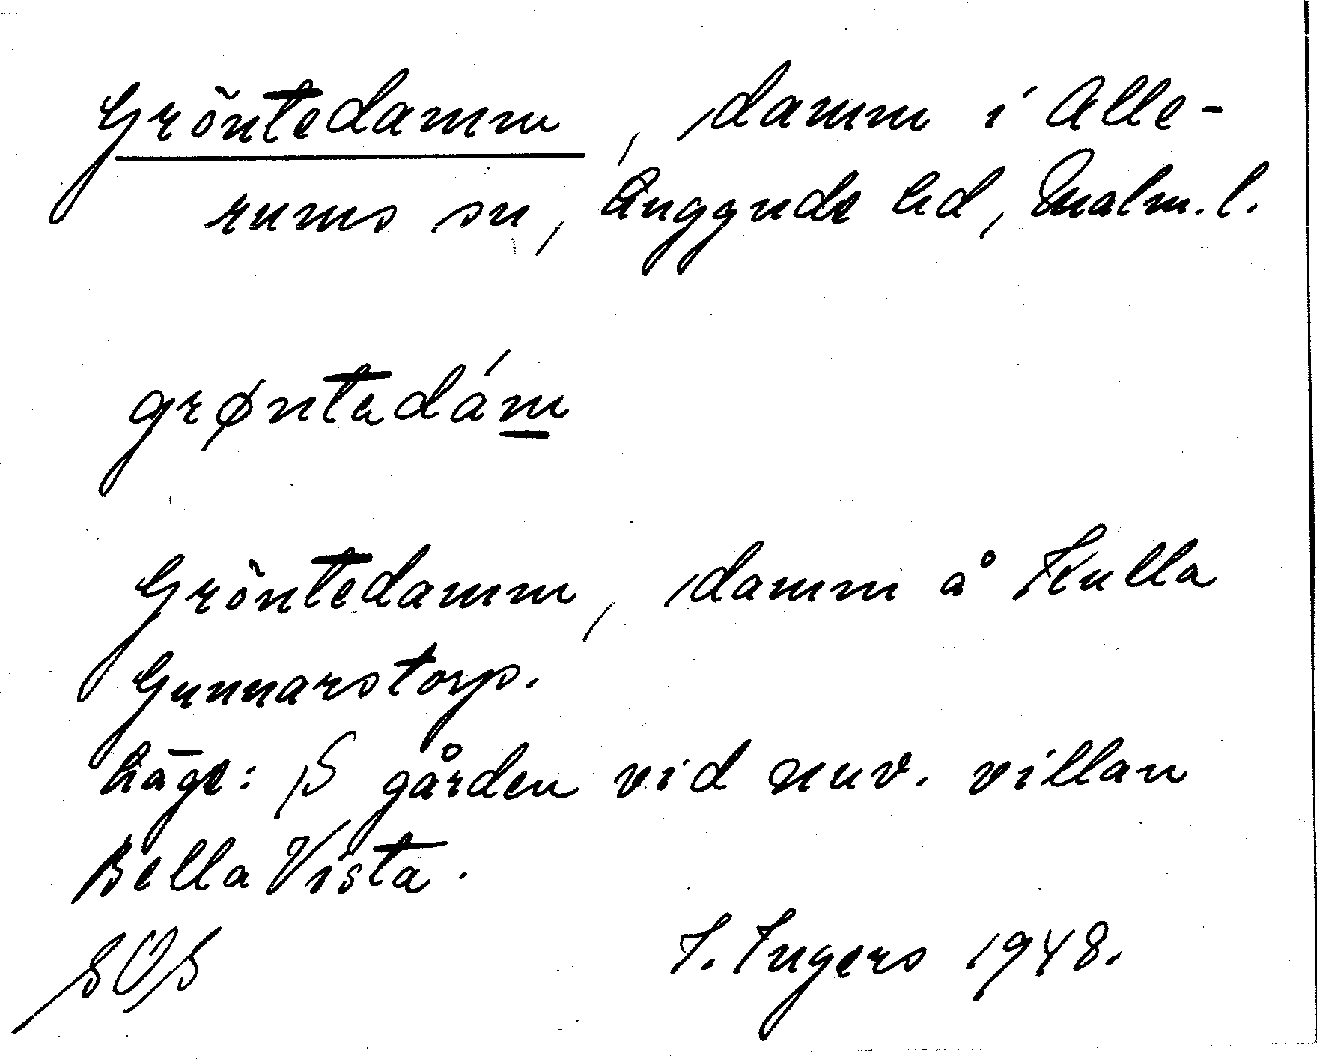 Gröntedamm, damm i Alle-
rums sn, Luggude hd, Malm. l.
grøntadám
Gröntedamm, damm å Kulla
Gunnarstorp.
Läge: S gården vid nuv. villan
Bella Vista.
SOS I. Ingers 1948.